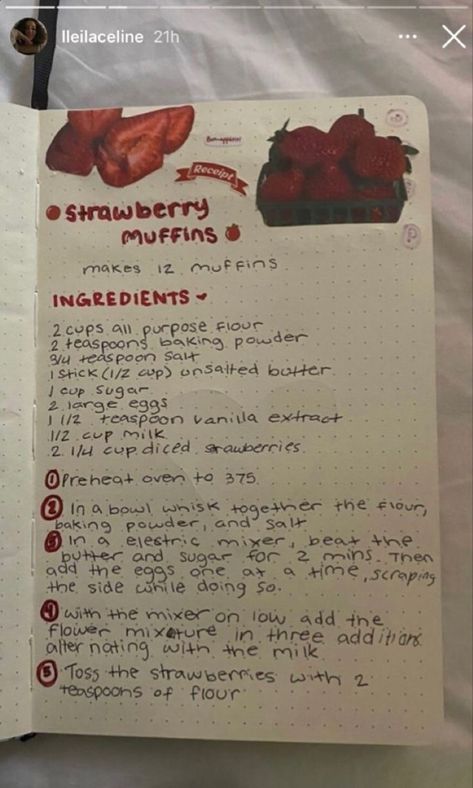 lleilaceline 21h
Receipt
Strawberry
muffins
makes 12 muffins
INGREDIENTS
2 cups all purpose flour
2 teaspoons baking powder
3/4 teaspoon salt
1 stick (1/2 cup) unsalted butter
1 cup sugar
2 large eggs
1 1/2 teaspoon vanilla extract
1/2 cup milk
2 1/4 cup diced strawberries
1 Preheat oven to 375
2 In a bowl whisk together the flour,
baking powder, and salt
3 In a electric mixer, beat the
butter and sugar for 2 mins. Then
add the eggs one at a time, scraping
the side while doing so.
4 With the mixer on low add the
flower mixture in three additions
alternating with the milk
5 Toss the strawberries with 2
teaspoons of flour